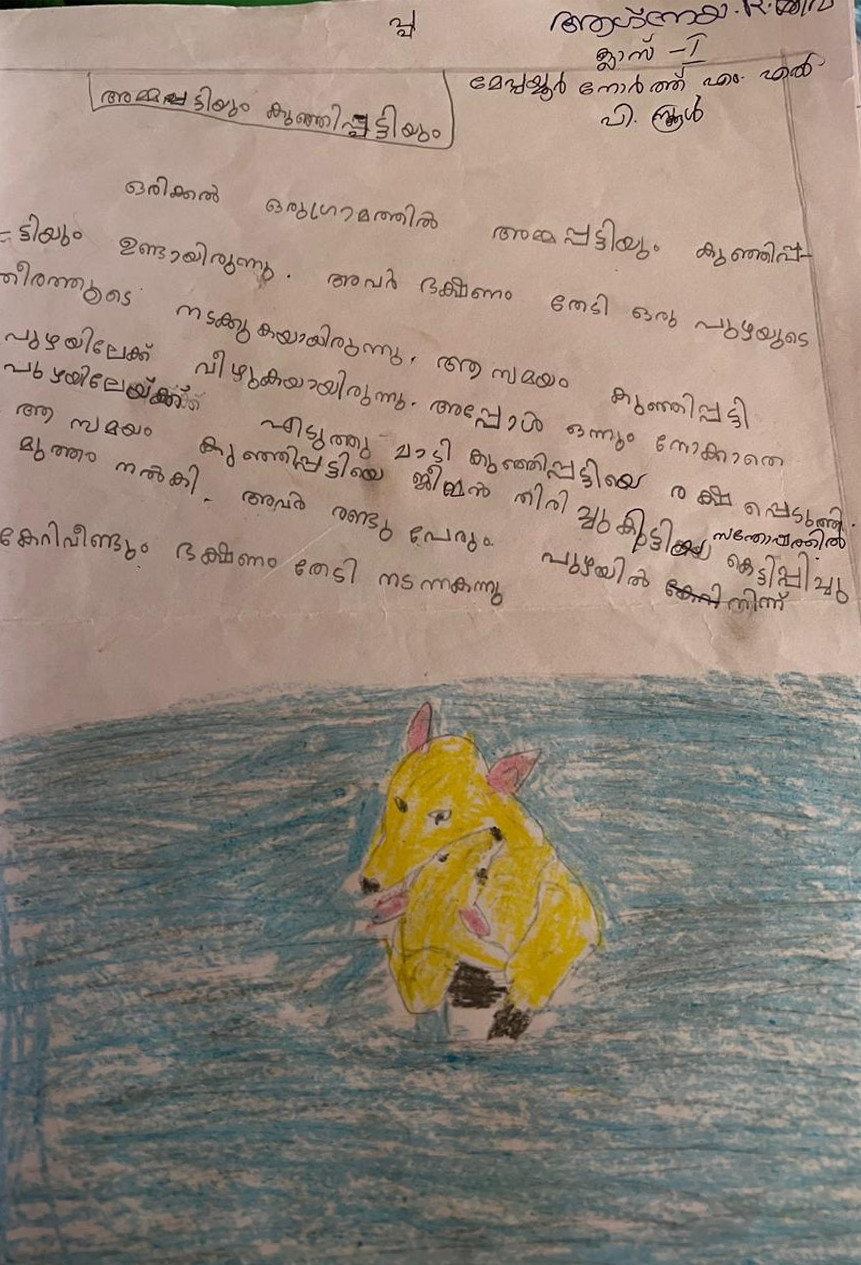 പ്പ
ആഗ്നേയ.R.
ക്ലാസ് -I
മേപ്പയ്യൂർ നോർത്ത് എം എൽ
പി. സ്കൂൾ
അമ്മപ്പട്ടിയും കുഞ്ഞിപ്പട്ടിയും
ഒരിക്കൽ ഒരുഗ്രാമത്തിൽ അമ്മപ്പട്ടിയും കുഞ്ഞിപ്പ-
ട്ടിയും ഉണ്ടായിരുന്നു. അവർ ഭക്ഷണം തേടി ഒരു പുഴയുടെ
തീരത്തൂടെ നടക്കുകയായിരുന്നു. ആ സമയം കുഞ്ഞിപ്പട്ടി
പുഴയിലേക്ക് വീഴുകയായിരുന്നു. അപ്പോൾ ഒന്നും നോക്കാതെ
പുഴയിലേയ്ക്ക് എടുത്തു ചാടി കുഞ്ഞിപ്പട്ടിയെ രക്ഷപ്പെടുത്തി.
ആ സമയം കുഞ്ഞിപ്പട്ടിയെ ജീവൻ തിരിച്ചു കിട്ടിയ സന്തോഷത്തിൽ
മുത്തം നൽകി. അവർ രണ്ടു പേരും കെട്ടിപ്പിച്ചു
പുഴയിൽ നിന്ന്
കേറിവീണ്ടും ഭക്ഷണം തേടി നടന്നകന്നു